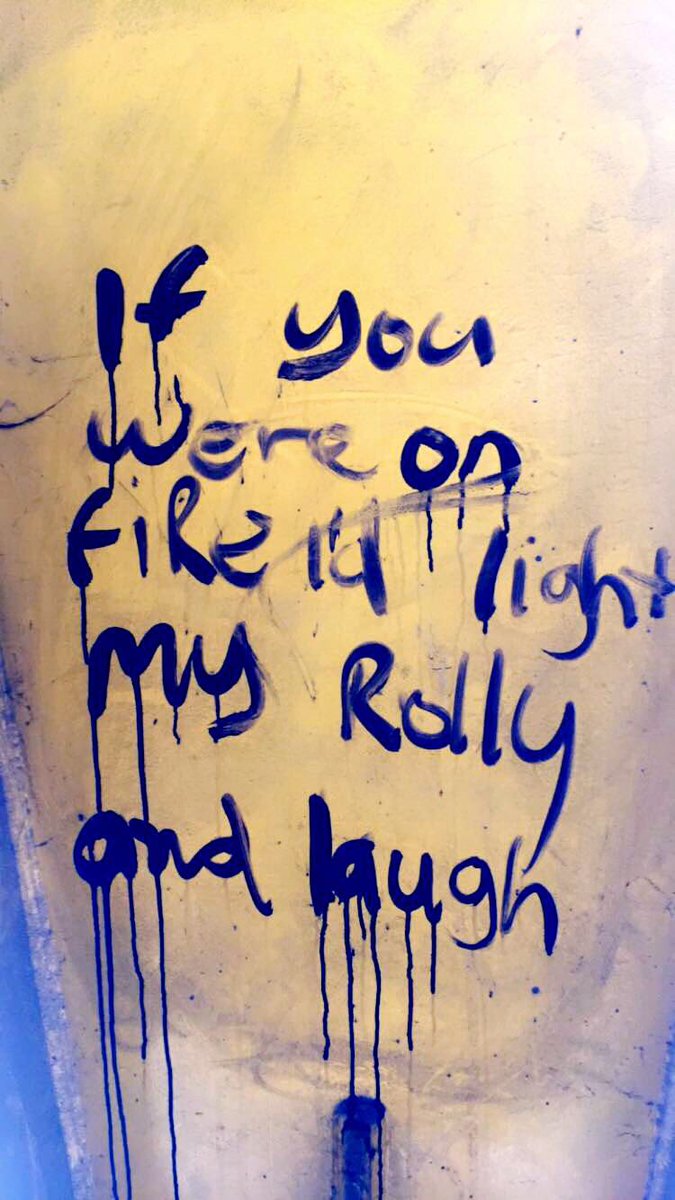 If you
were on
fire I'd light
my Rolly
and laugh